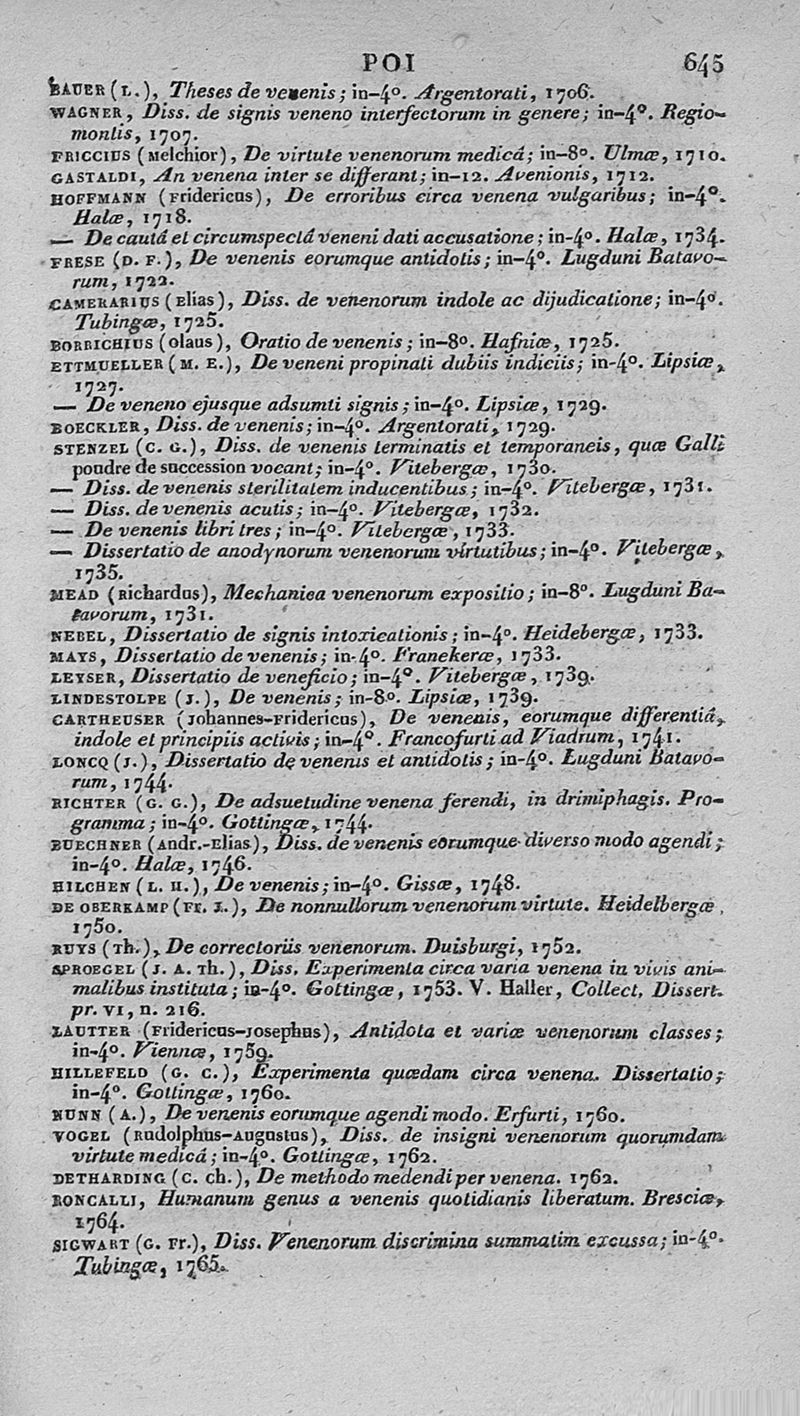 POI 645
BAUER (L.), Theses de venenis; in-4°. Argentorati, 1706.
WAGNER, Diss. de signis veneno interfectorum in genere; in-4°. Regio-
montis, 1707.
FRICCIUS (Melchior), De virtute venenorum medicâ; in-8°. Ulmæ, 1710.
GASTALDI, An venena inter se differant; in-12. Avenionis, 1712.
HOFFMANN (Fridericus), De erroribus circa venena vulgaribus; in-4°.
Halæ, 1718.
— De cautâ et circumspectâ veneni dati accusatione; in-4°. Halæ, 1734.
FRESE (D. F.), De venenis eorumque antidotis; in-4°. Lugduni Batavo-
rum, 1722.
CAMERARIUS (Elias), Diss. de venenorum indole ac dijudicatione; in-4°.
Tubingæ, 1725.
BORRICHIUS (olaus), Oratio de venenis; in-8°. Hafniæ, 1725.
ETTMUELLER (M. E.), De veneni propinati dubiis indiciis; in-4°. Lipsiæ,
1727.
— De veneno ejusque adsumti signis; in-4°. Lipsiæ, 1729.
BOECKLER, Diss. de venenis; in-4°. Argentorati, 1729.
STENZEL (C. G.), Diss. de venenis terminatis et temporaneis, quæ Galli
poudre de succession vocant; in-4°. Vitebergæ, 1730.
— Diss. de venenis sterilitatem inducentibus; in-4°. Vitebergæ, 1731.
— Diss. de venenis acutis; in-4°. Vitebergæ, 1732.
— De venenis libri tres; in-4°. Vitebergæ, 1733.
— Dissertatio de anodynorum venenorum virtutibus; in-4°. Vitebergæ,
1735.
MEAD (Richardus), Mechanica venenorum expositio; in-8°. Lugduni Ba-
tavorum, 1731.
NEBEL, Dissertatio de signis intoxicationis; in-4°. Heidebergæ, 1733.
MAYS, Dissertatio de venenis; in-4°. Franekeræ, 1733.
LEYSER, Dissertatio de veneficio; in-4°. Vitebergæ, 1739.
LINDESTOLPE (J.), De venenis; in-8°. Lipsiæ, 1739.
CARTHEUSER (Johannes-Fridericus), De venenis, eorumque differentiâ,
indole et principiis activis; in-4°. Francofurti ad Viadrum, 1741.
LONCQ (J.), Dissertatio de venenis et antidotis; in-4°. Lugduni Batavo-
rum, 1744.
RICHTER (G. G.), De adsuetudine venena ferendi, in drimiphagis. Pro-
gramma; in-4°. Gottingæ, 1744.
BUECHNER (Andr.-Elias), Diss. de venenis eorumque diverso modo agendi;
in-4°. Halæ, 1746.
HILCHEN (L. H.), De venenis; in-4°. Gissæ, 1748.
DE OBERKAMP (Fr. J.), De nonnullorum venenorum virtute. Heidelbergæ,
1750.
RUYS (Th.), De correctoriis venenorum. Duisburgi, 1752.
SPROEGEL (J. A. Th.), Diss. Experimenta circa varia venena in vivis ani-
malibus instituta; in-4°. Gottingæ, 1753. V. Haller, Collect. Dissert.
pr. VI, n. 216.
LAUTTER (Fridericus-Josephus), Antidota et variæ venenorum classes;
in-4°. Viennæ, 1759.
HILLEFELD (G. C.), Experimenta quædam circa venena. Dissertatio;
in-4°. Gottingæ, 1760.
NUNN (A.), De venenis eorumque agendi modo. Erfurti, 1760.
VOGEL (Rudolphus-Augustus), Diss. de insigni venenorum quorumdam
virtute medicâ; in-4°. Gottingæ, 1762.
DETHARDING (C. Ch.), De methodo medendi per venena. 1762.
RONCALLI, Humanum genus a venenis quotidianis liberatum. Bresciæ,
1764.
SIGWART (G. Fr.), Diss. Venenorum discrimina summatim excussa; in-4°.
Tubingæ, 1765.